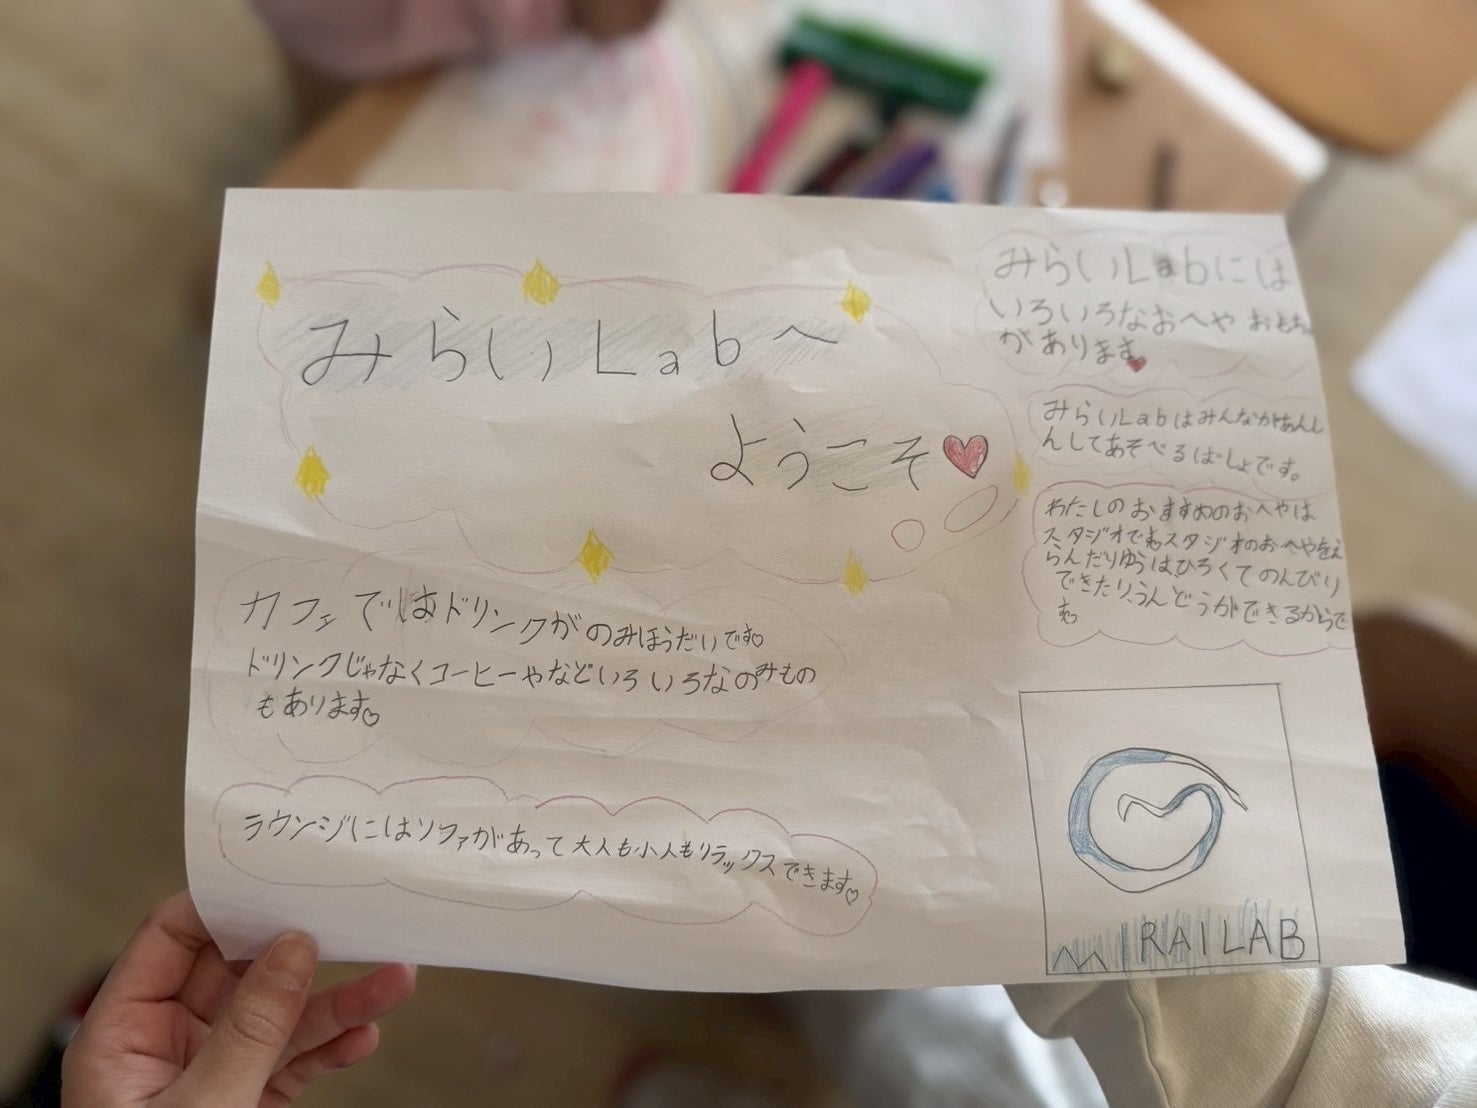 みらいLabへ
ようこそ
カフェではドリンクがのみほうだいです
ドリンクじゃなくコーヒーやなどいろいろなのみもの
もあります
ラウンジにはソファがあって大人も小人もリラックスできます
みらいLabには
いろいろなおへや おもち
があります
みらいLabはみんながあんし
んしてあそべるばしょです。
わたしのおすすめのおへやは
スタジオです。スタジオのおへやをえ
らんだりゆうは、ひろくてのんびり
できたり、うんどうができるからで
す。
MIRAILAB